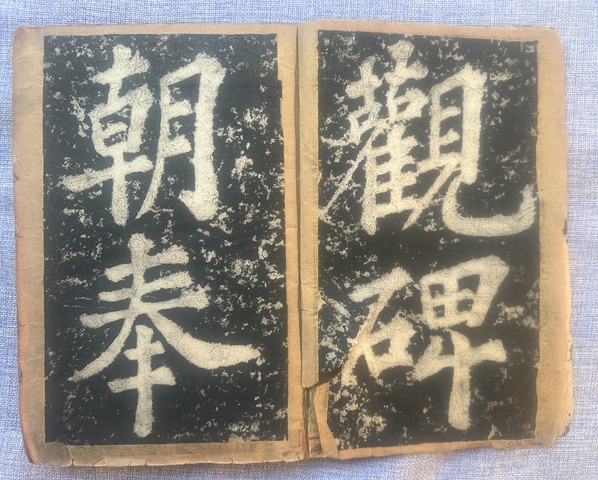 觀碑
朝奉